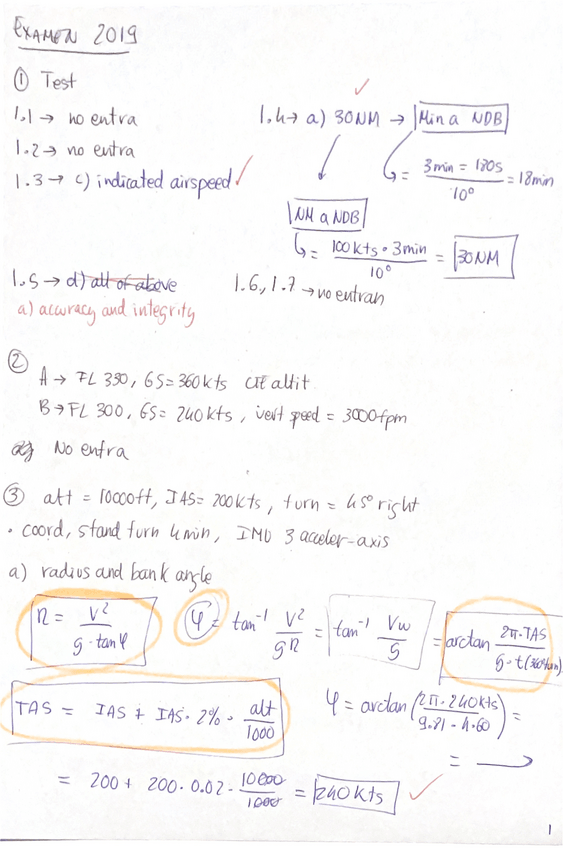 EXAMEN 2019
① Test
1.1 → no entra
1.2 → no entra
1.3 → c) indicated airspeed ✓
1.4 → a) 30NM → Min a NDB ✓
= 3min = 180s / 10° = 18min
NM a NDB
= 100kts · 3min / 10° = 30NM
1.5 → d) all of above
a) accuracy and integrity
1.6, 1.7 → no entran
②
A → FL 330, GS = 360kts altit
B → FL 300, GS = 240kts, vert speed = 3000fpm
No entra
③ alt = 10000ft, IAS = 200kts, turn = 45° right
· coord, stand turn 4min, IMU 3 acceler-axis
a) radius and bank angle
R = V² / g · tan φ
φ = tan⁻¹ V² / gR = tan⁻¹ Vω / g = arctan 2π · TAS / g · t(360turn)
TAS = IAS + IAS · 2% · alt / 1000
φ = arctan (2π · 240kts / 9.81 - 4.60) =
= →
= 200 + 200 · 0.02 · 10000 / 1000 = 240kts ✓
1